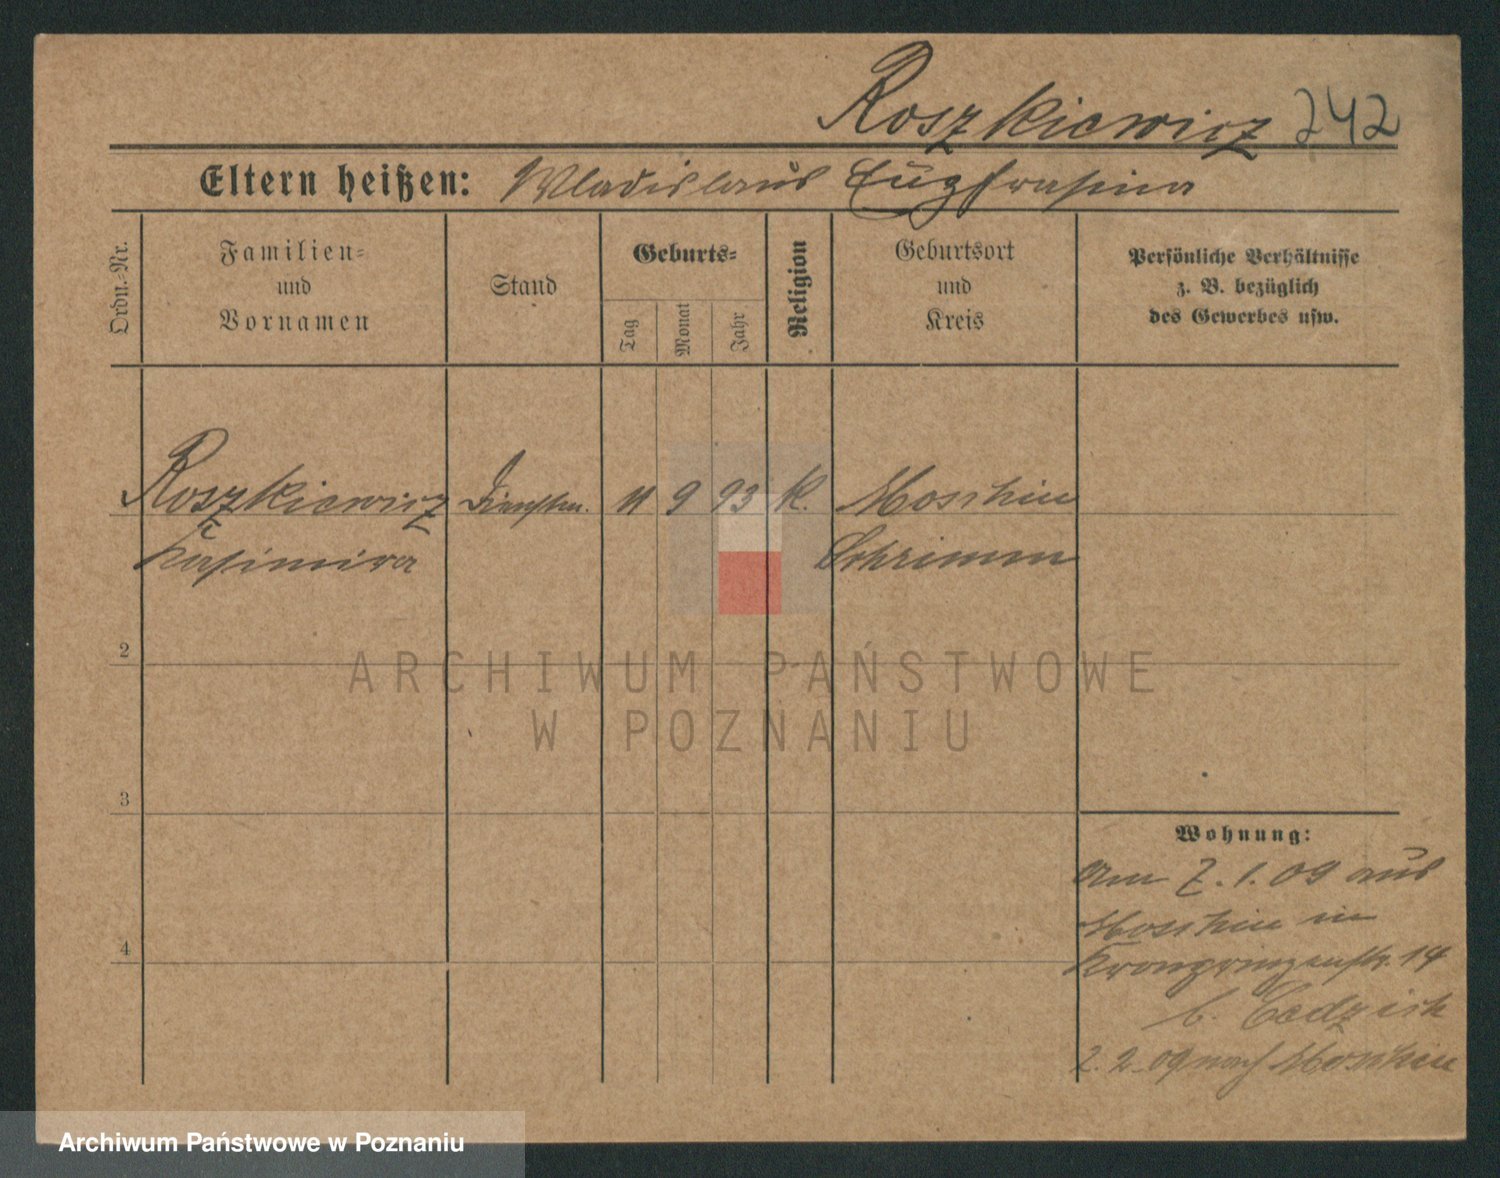 Roszkiewicz 242
Eltern heißen: Wladislaus Eugfrasina
Ordn.-Nr.
Familien-
und
Vornamen
Stand
Geburts-
Tag
Monat
Jahr
Religion
Geburtsort
und
Kreis
Persönliche Verhältnisse
z. B. bezüglich
des Gewerbes usw.
Roszkiewicz Dienstm. 11 9 93 K. Moschin
Kasimira Schrimm
2
3
4
Wohnung:
Am 7.1.09 aus
Moschin in
Kronprinzenstr. 14
b.
2.2.09 nach Moschin
ARCHIWUM PAŃSTWOWE
W POZNANIU
Archiwum Państwowe w Poznaniu